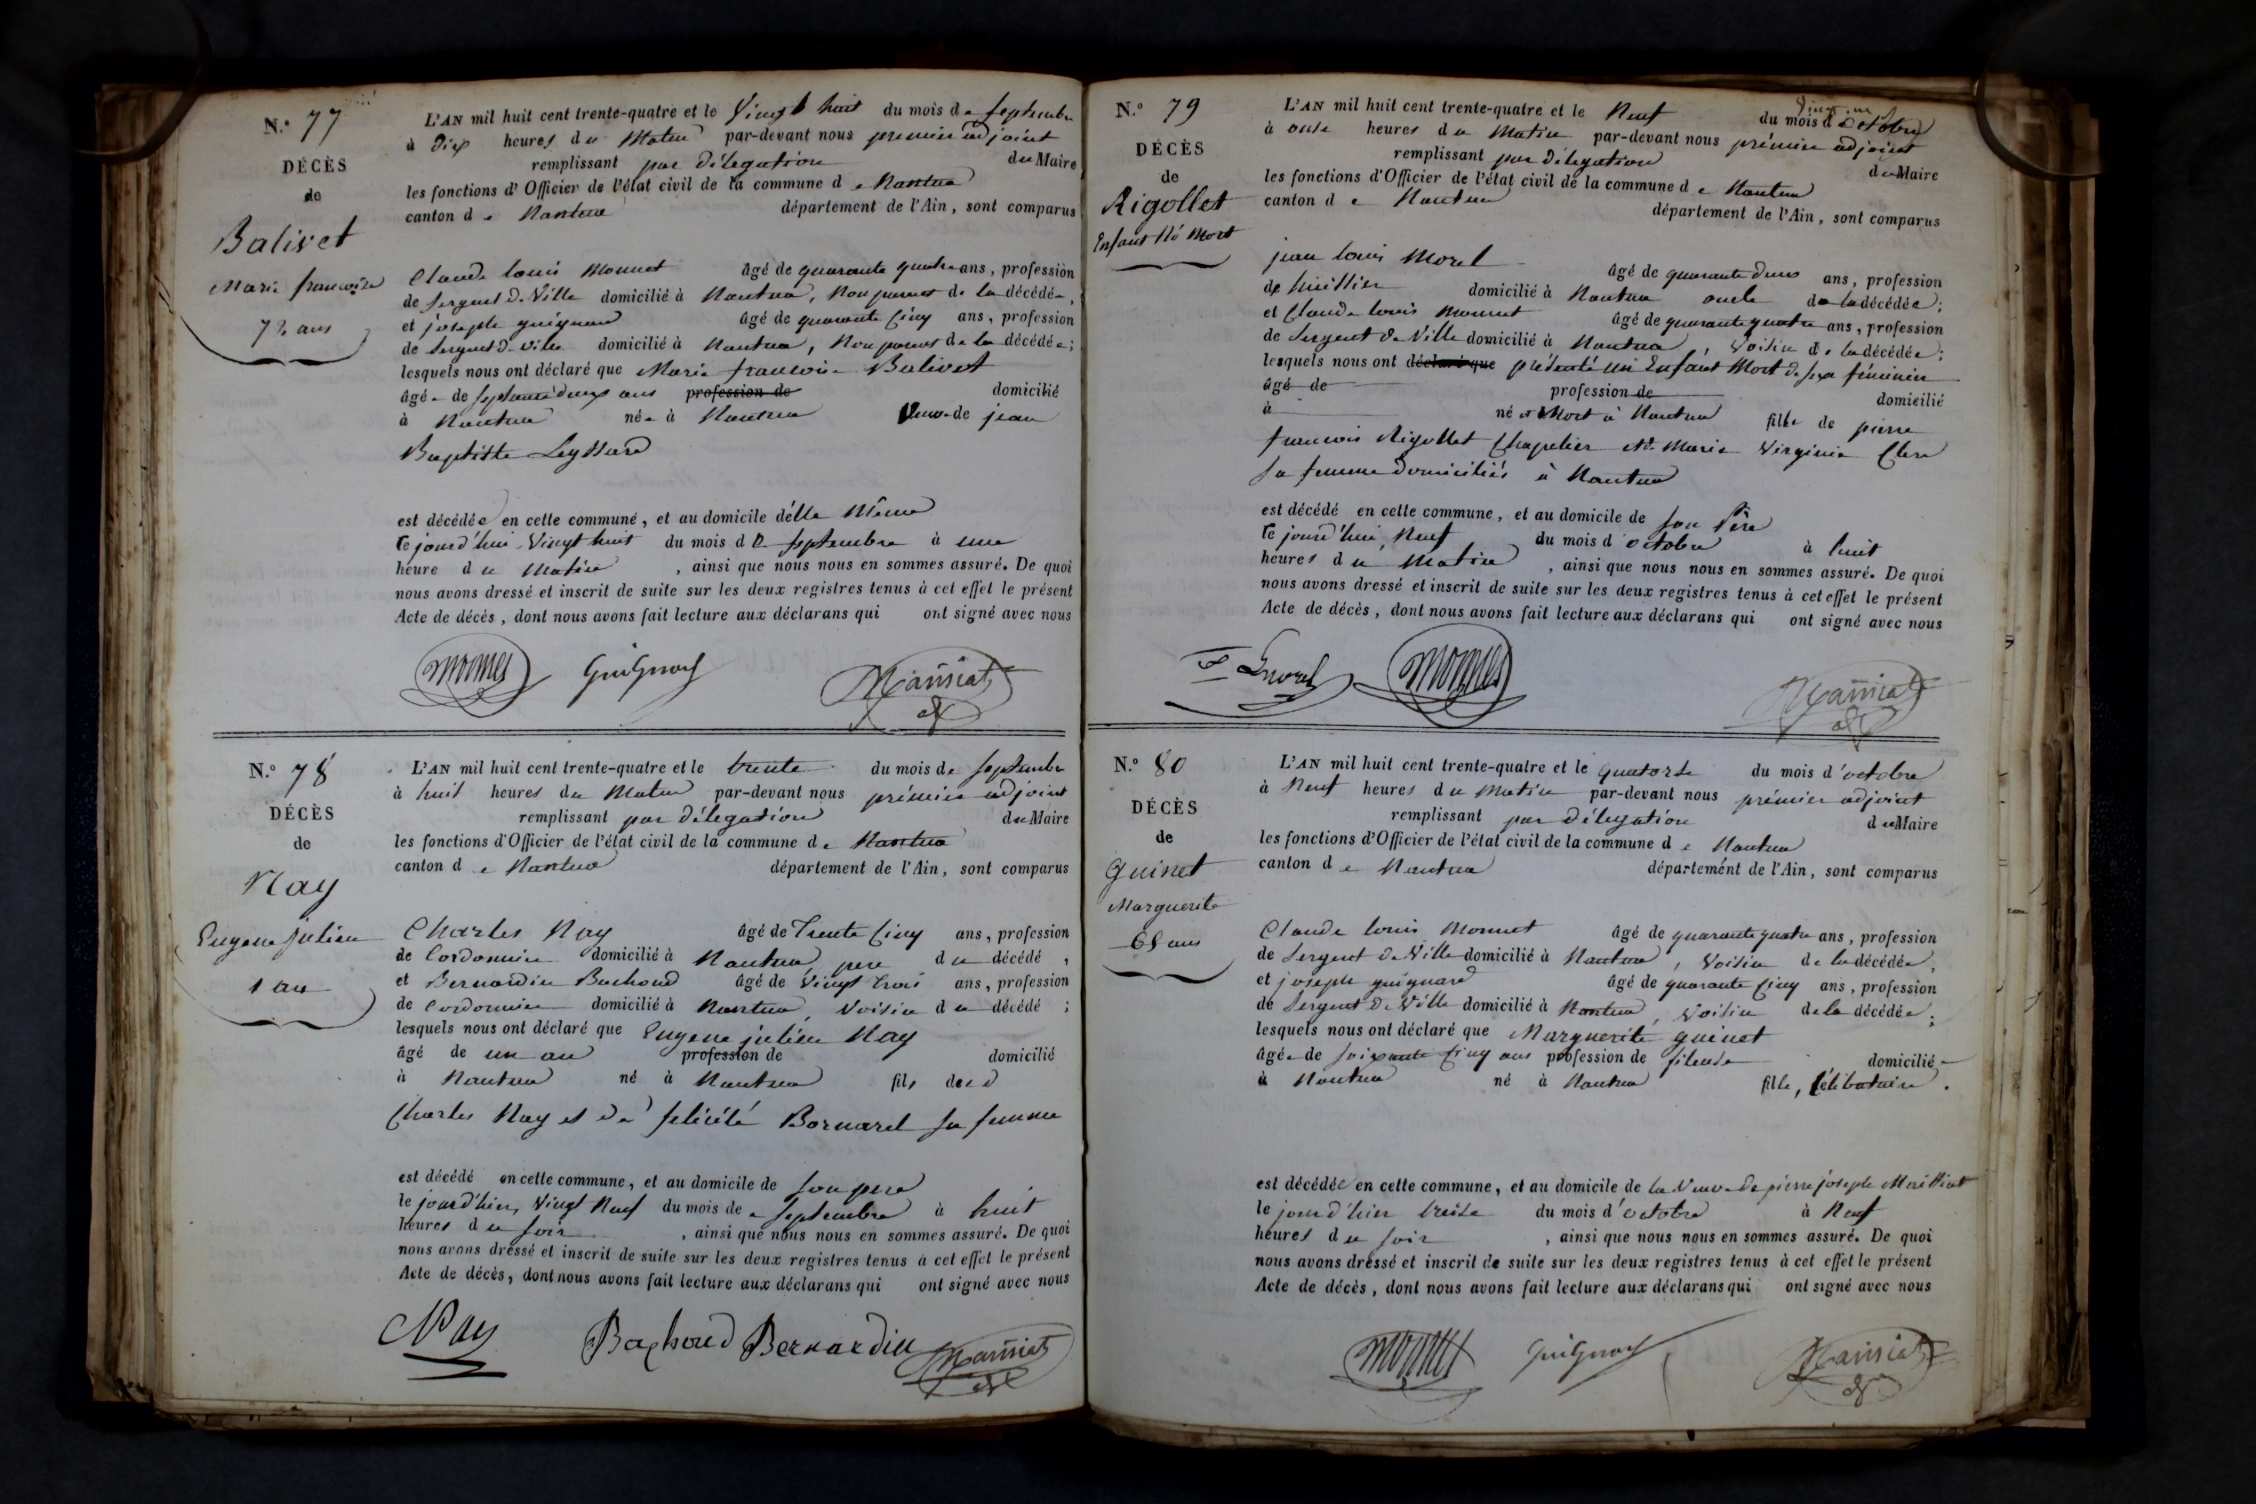 N.° 77
DÉCÈS
de
Balivet
Marie françoise
72 ans
L'AN mil huit cent trente-quatre et le Vingt huit du mois de septembre
à Dix heures du Matin par-devant nous premier adjoint
remplissant par délégation du Maire
les fonctions d'Officier de l'état civil de la commune de Nantua
canton de Nantua département de l'Ain, sont comparus
Claude louis Monnet âgé de quarante quatre ans, profession
de sergent de Ville domicilié à Nantua, Non parent de la décédée,
et joseph guignard âgé de quarante cinq ans, profession
de sergent de ville domicilié à Nantua, Non parent de la décédée;
lesquels nous ont déclaré que Marie francoise Balivet
âgée de septante deux ans profession de domicilié
à Nantua née à Nantua Veuve de jean
Baptiste Leyssard
est décédée en cette commune, et au domicile d'elle Même
le jourd'hui Vingt huit du mois de septembre à une
heure du Matin, ainsi que nous nous en sommes assuré. De quoi
nous avons dressé et inscrit de suite sur les deux registres tenus à cet effet le présent
Acte de décès, dont nous avons fait lecture aux déclarans qui ont signé avec nous
monnet Guignard Mansiat
N.° 78
DÉCÈS
de
Nay
Eugene julien
1 an
L'AN mil huit cent trente-quatre et le trente du mois de septembre
à huit heures du Matin par-devant nous prémier adjoint
remplissant par délégation du Maire
les fonctions d'Officier de l'état civil de la commune de Nantua
canton de Nantua département de l'Ain, sont comparus
Charles Nay âgé de Trente cinq ans, profession
de Cordonnier domicilié à Nantua pere du décédé,
et Bernardin Bachoud âgé de Vingt trois ans, profession
de Cordonnier domicilié à Nantua, Voisin du décédé;
lesquels nous ont déclaré que Eugene julien Nay
âgé de un an profession de domicilié
à Nantua né à Nantua fils de
Charles Nay et de félicité Bornarel sa femme
est décédé en cette commune, et au domicile de son pere
le jourd'hier, Vingt Neuf du mois de septembre à huit
heures du soir, ainsi que nous nous en sommes assuré. De quoi
nous avons dressé et inscrit de suite sur les deux registres tenus à cet effet le présent
Acte de décès, dont nous avons fait lecture aux déclarans qui ont signé avec nous
Nay Bachoud Bernardin Mansiat
N.° 79
DÉCÈS
de
Rigollet
Enfant Né Mort
L'AN mil huit cent trente-quatre et le Neuf du mois d'octobre
à onse heures du Matin par-devant nous prémier adjoint
remplissant par délégation du Maire
les fonctions d'Officier de l'état civil de la commune de Nantua
canton de Nantua département de l'Ain, sont comparus
jean louis Morel âgé de quarante deux ans, profession
de huissier domicilié à Nantua oncle de la décédée;
et Claude louis Monnet âgé de quarante quatre ans, profession
de sergent de Ville domicilié à Nantua, Voisin de la décédée;
lesquels nous ont déclaré que présenté un Enfant Mort de sexe féminin
âgé de profession de domicilié
à né et Mort à Nantua fille de pierre
francois Rigollet Chapelier et de Marie Virginie Clere
sa femme domiciliés à Nantua
est décédé en cette commune, et au domicile de son Père
le jourd'hui Neuf du mois d'octobre à huit
heures du Matin, ainsi que nous nous en sommes assuré. De quoi
nous avons dressé et inscrit de suite sur les deux registres tenus à cet effet le présent
Acte de décès, dont nous avons fait lecture aux déclarans qui ont signé avec nous
Morel monnet Mansiat
N.° 80
DÉCÈS
de
guinet
Marguerite
65 ans
L'AN mil huit cent trente-quatre et le quatorse du mois d'octobre
à Neuf heures du Matin par-devant nous prémier adjoint
remplissant par délégation du Maire
les fonctions d'Officier de l'état civil de la commune de Nantua
canton de Nantua département de l'Ain, sont comparus
Claude louis Monnet âgé de quarante quatre ans, profession
de Sergent de Ville domicilié à Nantua, Voisin de la décédée,
et joseph guignard âgé de quarante cinq ans, profession
de Sergent de Ville domicilié à Nantua, Voisin de la décédée;
lesquels nous ont déclaré que Marguerite guinet
âgée de soixante cinq ans profession de fileuse domicilié
à Nantua né à Nantua fille, célibataire.
est décédée en cette commune, et au domicile de la Veuve de pierre joseph
le jourd'hier treise du mois d'octobre à Neuf
heures du soir, ainsi que nous nous en sommes assuré. De quoi
nous avons dressé et inscrit de suite sur les deux registres tenus à cet effet le présent
Acte de décès, dont nous avons fait lecture aux déclarans qui ont signé avec nous
monnet Guignard Mansiat